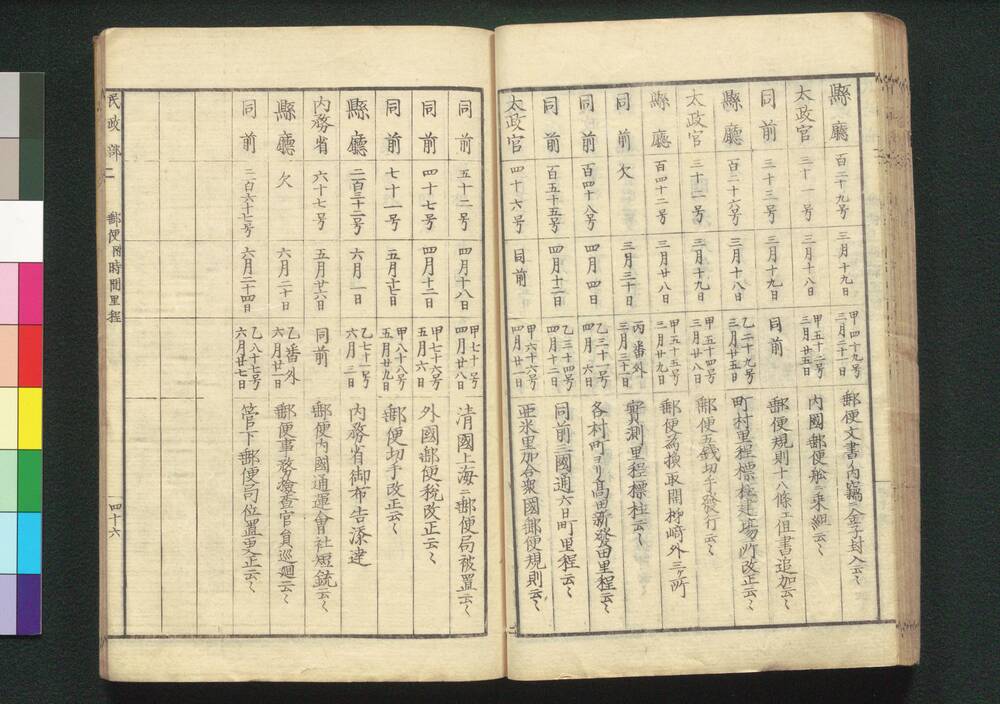 縣廳 百二十九号 三月十九日 甲四十九号 三月二十一日 郵便文書ノ内竊ニ金子封入云〻
太政官 三十一号 三月十八日 甲五十二号 三月廿五日 内國郵便舩ニ乗組云〻
同前 三十三号 三月十九日 同前 郵便規則十八條ェ但書追加云〻
縣廳 百三十六号 三月十八日 乙二十九号 三月廿五日 町村里程標柱建場所改正云〻
太政官 三十二号 三月十九日 甲五十四号 三月廿八日 郵便五銭切手發行云〻
縣廳 百四十二号 三月廿八日 甲五十五号 三月廿九日 郵便為換取開柳﨑外三ヶ所
同前 欠 三月三十日 丙番外 三月三十一日 實測里程標柱云〻
同前 百四十八号 四月四日 乙三十一号 四月六日 各村町ヨリ髙田新發田里程云〻
同前 百五十五号 四月十二日 乙三十四号 四月十二日 同前三國通六日町里程云〻
太政官 四十六号 同前 甲六十六号 四月廿一日 亜米里加合衆國郵便規則云〻
同前 五十二号 四月十八日 甲七十号 四月廿八日 清國上海ニ郵便局被置云〻
同前 四十七号 四月十二日 甲七十六号 五月六日 外國郵便税改正云〻
同前 七十一号 五月十七日 甲八十八号 五月廿九日 郵便切手ヲ改正云〻
縣廳 二百三十二号 六月一日 乙七十一号 六月二日 内務省御布告添達
内務省 六十七号 五月廿六日 同前 郵便内國通運會社短銃云〻
縣廳 欠 六月二十日 乙番外 六月廿一日 郵便事務檢査官員巡廻云〻
同前 二百六十七号 六月二十四日 乙八十七号 六月廿七日 管下郵便局位置更正云〻
民政部二 郵便附時間里程 四十六